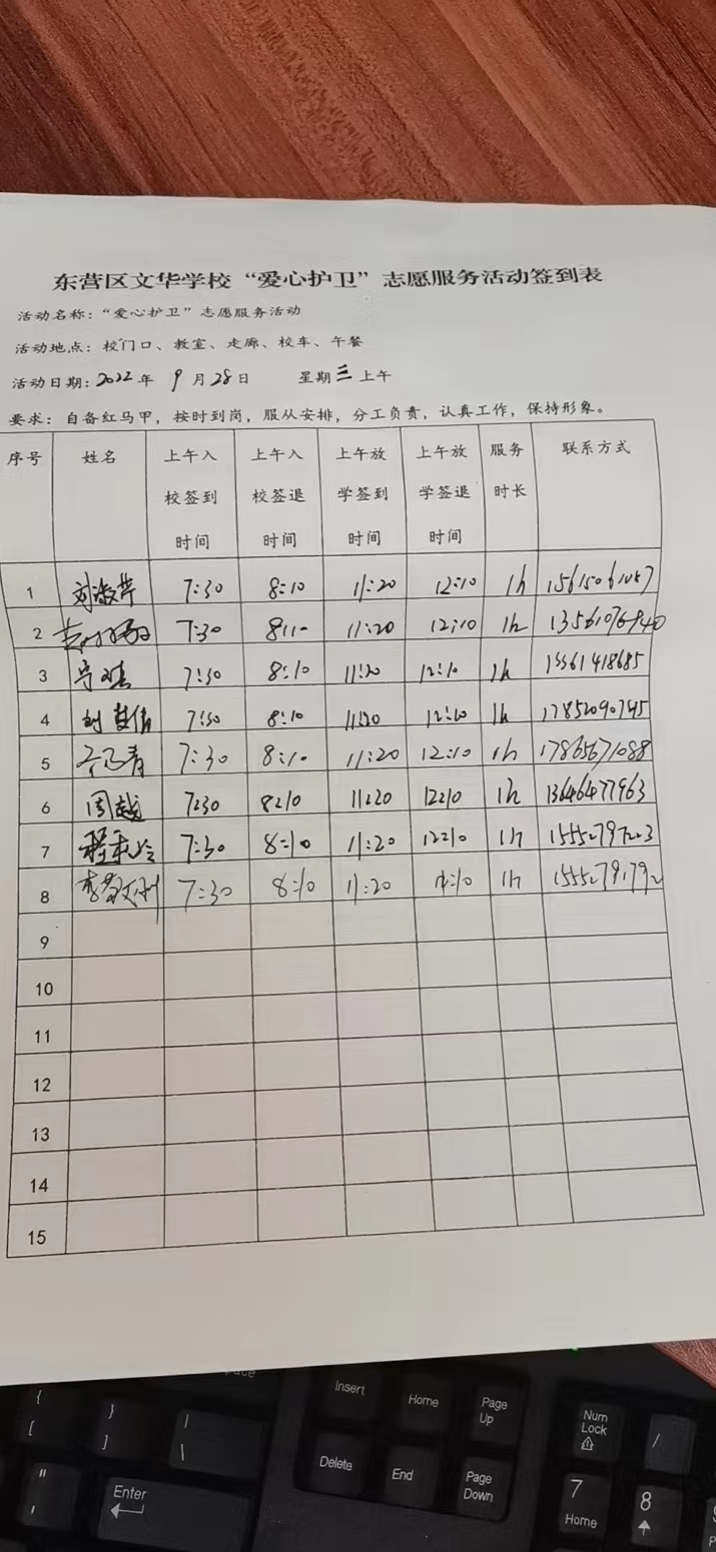 东营区文华学校“爱心护卫”志愿服务活动签到表
活动名称：“爱心护卫”志愿服务活动
活动地点：校门口、教室、走廊、校车、午餐
活动日期：2022年 9月28日 星期三上午
要求：自备红马甲，按时到岗，服从安排，分工负责，认真工作，保持形象。
序号 姓名 上午入校签到时间 上午入校签退时间 上午放学签到时间 上午放学签退时间 服务时长 联系方式
1 刘淑芹 7:30 8:10 11:20 12:10 1h 15615061057
2 7:30 8:10 11:20 12:10 1h 13561076940
3 7:30 8:10 11:20 12:10 1h 15561418685
4 7:30 8:10 11:20 12:10 1h 17852090745
5 7:30 8:10 11:20 12:10 1h 17865671088
6 周越 7:30 8:10 11:20 12:10 1h 13646477963
7 7:30 8:10 11:20 12:10 1h
8 7:30 8:10 11:20 12:10 1h
9
10
11
12
13
14
15
Insert Home Page Up Num Lock /
{ [ } ] | \
Delete End Page Down 7 Home 8
" ' Enter